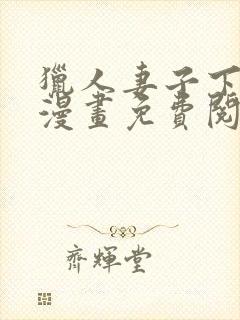 獵人妻子下
漫畫免費閱
齊輝堂